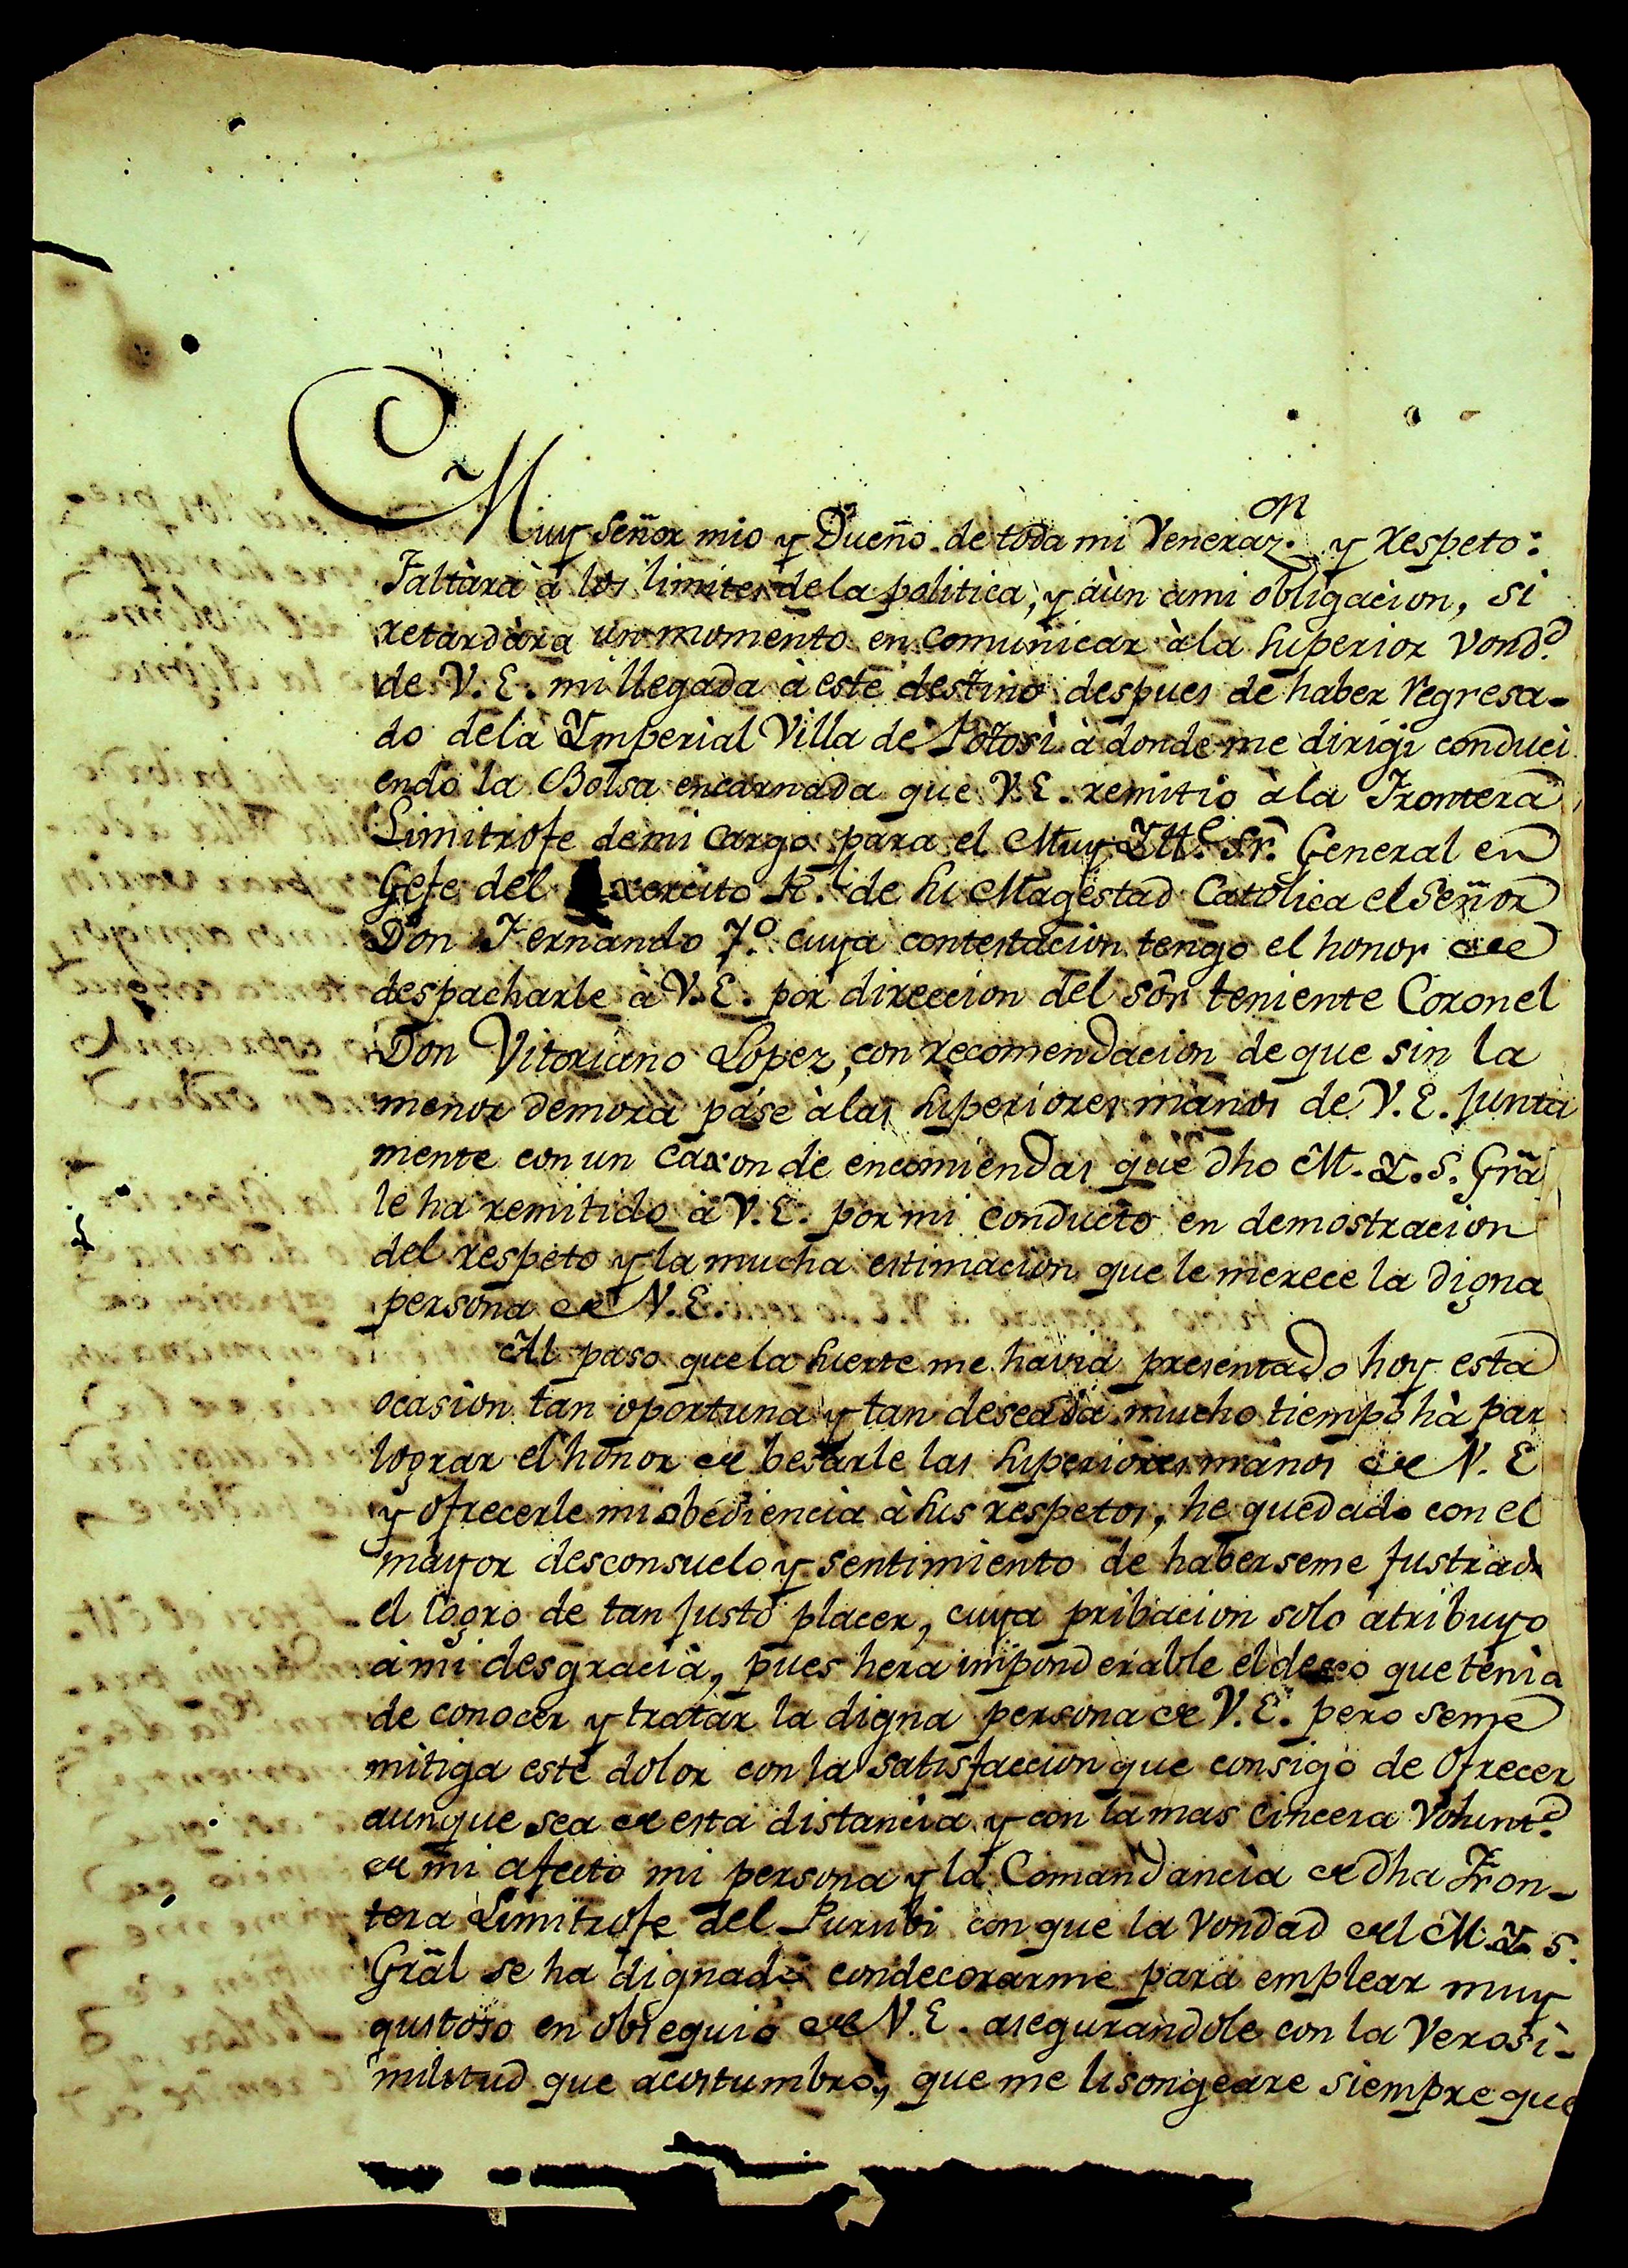 Muy Señor mio y Dueño de toda mi Veneraz.on y respeto:
Faltàra à los limites de la politica, y aùn a mi obligacion, si
retardàra un momento en comunicar à la superior vond.d
de V. E. mi llegada à este destino despues de haber regresa-
do de la Ymperial Villa de Potosi à donde me dirigi conduci
endo la Bolsa encarnada que V. E. remitio à la Frontera
Limitrofe de mi cargo para el Muy Ill.e Sr. General en
Gefe del Exercito R.l de su Magestad Catolica el Señor
Don Fernando 7.o cuya contestacion tengo el honor de
despacharle à V. E. por direccion del Sôr teniente Coronel
Don Vitoriano Lopez, con recomendacion de que sin la
menor demora pase à las superiores manos de V. E. junta
mente con un caxon de encomiendas que dho M. Y. S. Grâ
le ha remitido à V. E. por mi conducto en demostracion
del respeto y la mucha estimacion que le merece la digna
persona de V. E.
Al paso que la suerte me havia presentado hoy esta
ocasion tan oportuna y tan deseada mucho tiempo hà par
lograr el honor de besarle las superiores manos de V. E
y ofrecerle mi obediencia à sus respetos, he quedado con el
mayor desconsuelo y sentimiento de haberseme fustrado
el logro de tan justo placer, cuya pribacion solo atribuyo
à mi desgracia, pues hera imponderable el deseo que tenia
de conocer y tratar la digna persona de V. E. pero seme
mitiga este dolor con la satisfaccion que consigo de ofrecer
aunque sea de esta distancia y con la mas cincera volunt.d
de mi afecto mi persona y la Comandancia de dha Fron-
tera Limitrofe del Purubi con que la vondad del M. Y. S.
Grâl se ha dignado condecorarme para emplear muy
gustoso en obsequio de V. E. asegurandole con la verosi-
militud que acostumbro, que me lisongeare siempre que